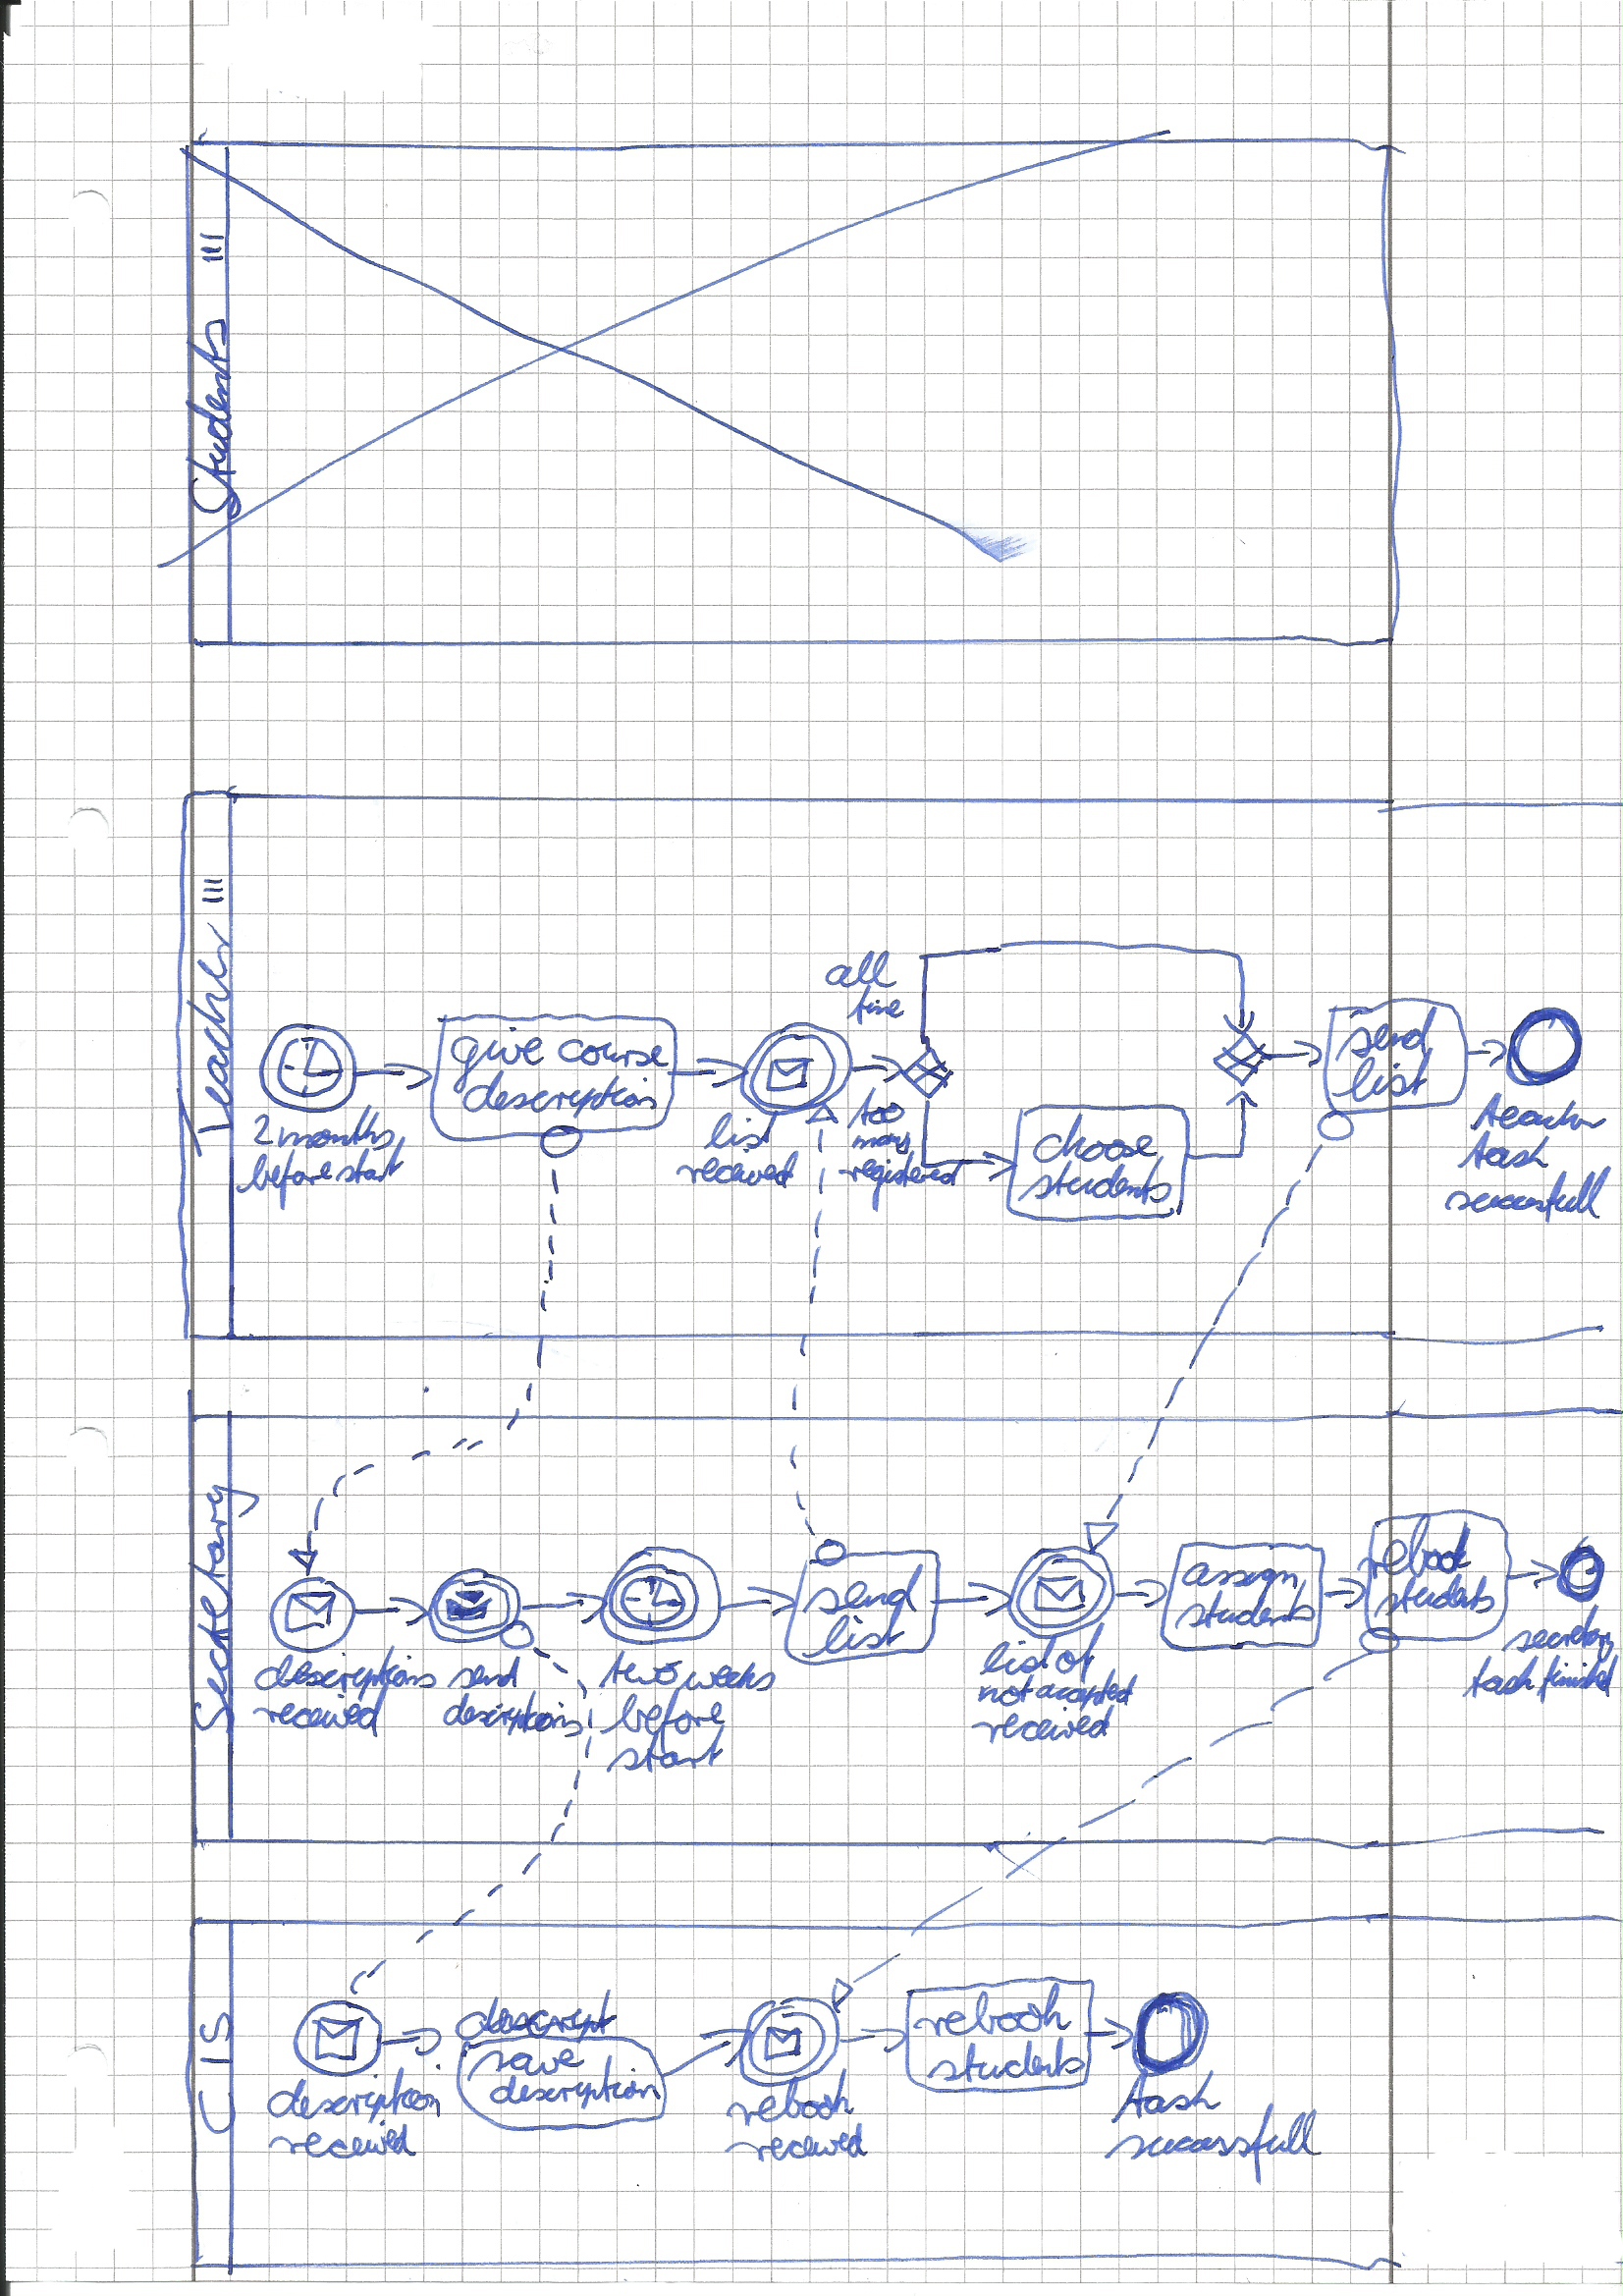 Students
Teacher
all
fine
give course
description
send
list
2 months
before start
list
received
too
many
registered
choose
students
teacher
task
successfull
Secretary
descriptions
received
send
descriptions
two weeks
before
start
send
list
list of
not accepted
received
assign
students
rebook
students
secretary
task finished
CIS
description
received
descript
save
description
rebook
received
rebook
students
task
successfull